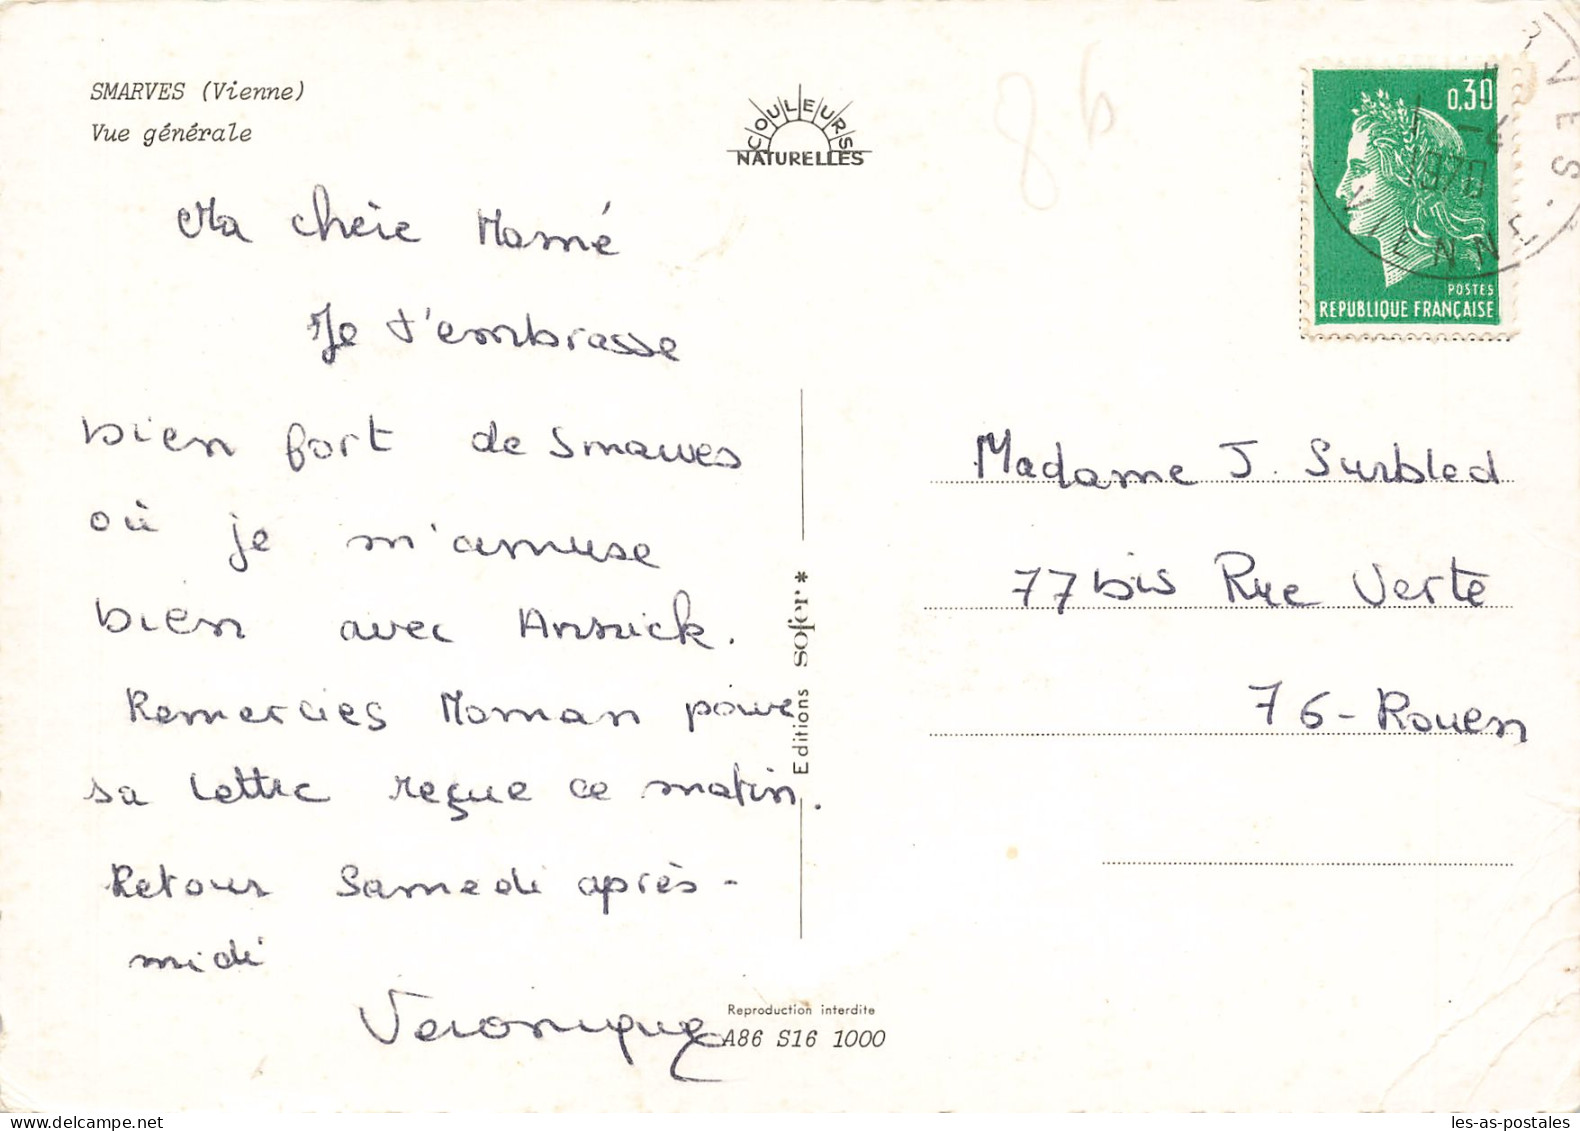 SMARVES (Vienne)
Vue générale
COULEURS
NATURELLES
86
0,30
1970
VIENNE
POSTES
REPUBLIQUE FRANÇAISE
Ma chère Mamé
Je t'embrasse
bien fort de Smarves
où je m'amuse
bien avec Annick.
Remercies Maman pour
sa lettre reçue ce matin.
Retour Samedi après-
midi
Véronique
Madame J. Surbled
77 bis Rue Verte
76 - Rouen
Editions sofer *
Reproduction interdite
A86 S16 1000
les-as-postales